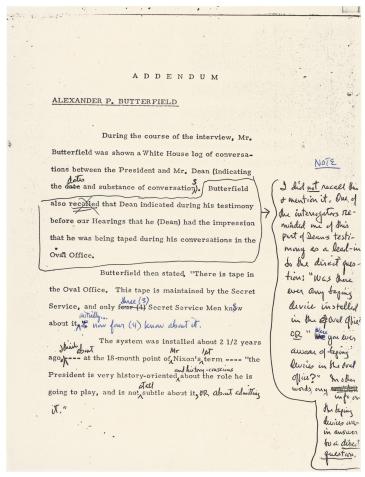 ADDENDUM
ALEXANDER P. BUTTERFIELD
During the course of the interview, Mr.
Butterfield was shown a White House log of conversa-
tions between the President and Mr. Dean (indicating
dates
s
the date and substance of conversation). Butterfield
also recalled that Dean indicated during his testimony
before our Hearings that he (Dean) had the impression
that he was being taped during his conversations in the
Oval Office.
Butterfield then stated, "There is tape in
the Oval Office. This tape is maintained by the Secret
three (3)
Service, and only four (4) Secret Service Men know
initially...
about it, now four (4) know about it.
The system was installed about 2 1/2 years
think about Mr 1st
ago, ---- at the 18-month point of Nixon's term ---- "the
and history-conscious
President is very history-oriented about the role he is
at all
going to play, and is not subtle about it, OR about admitting
it."
NOTE
I did not recall this
or mention it. One of
the interrogators re-
minded me of this
part of Dean's testi-
mony as a lead-in
to the direct ques-
tion: "Was there
ever any taping
device installed
in the Oval Office"
OR "Were you ever
aware of taping
devices in the Oval
Office?" In other
words, any
info on
the taping
devices was
in answer
to a direct
question.